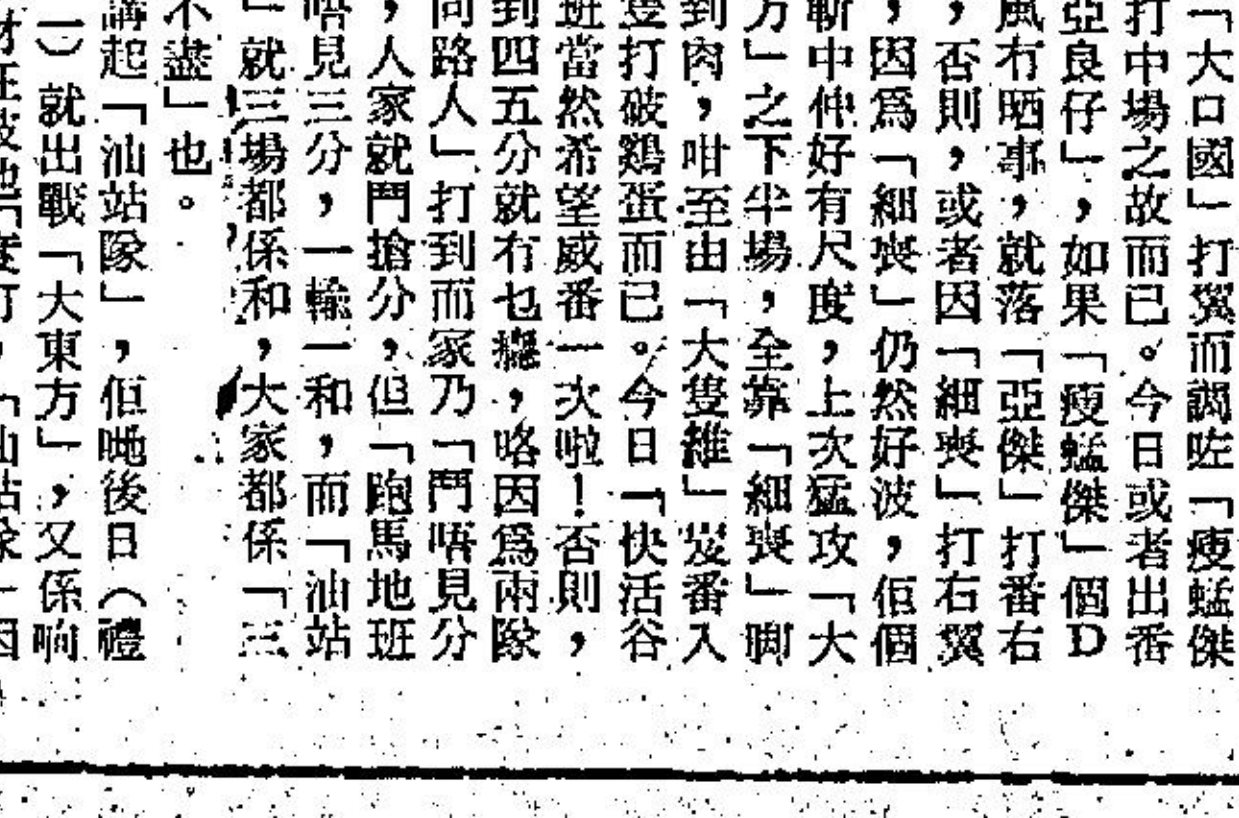 「大口國」打翼而謁咗「瘦蜢傑
打中場之故而已。今日或者出番
亞良仔」，如果「瘦蜢傑」個D
風冇晒事，就落「亞傑」打番右
，否則，或者因「細喪」打右翼
，因爲「細喪」仍然好波，佢個
斬中仲好有尺度，上次猛攻「大
方」之下半場，全靠「細喪」脚
到肉，咁至由「大隻維」岌番入
隻打破鷄蛋而已。今日「快活谷
班當然希望威番一次啦！否則，
到四五分就冇乜癮，咯因爲兩隊
同路人」打到而家乃「鬥唔見分
，人家就鬥搶分，但「跑馬地班
唔見三分，一輸一和，而「油站
」就三場都係和，大家都係「三
不盡」也。
講起「油站隊」，佢哋後日（禮
一）就出戰「大東方」，又係响